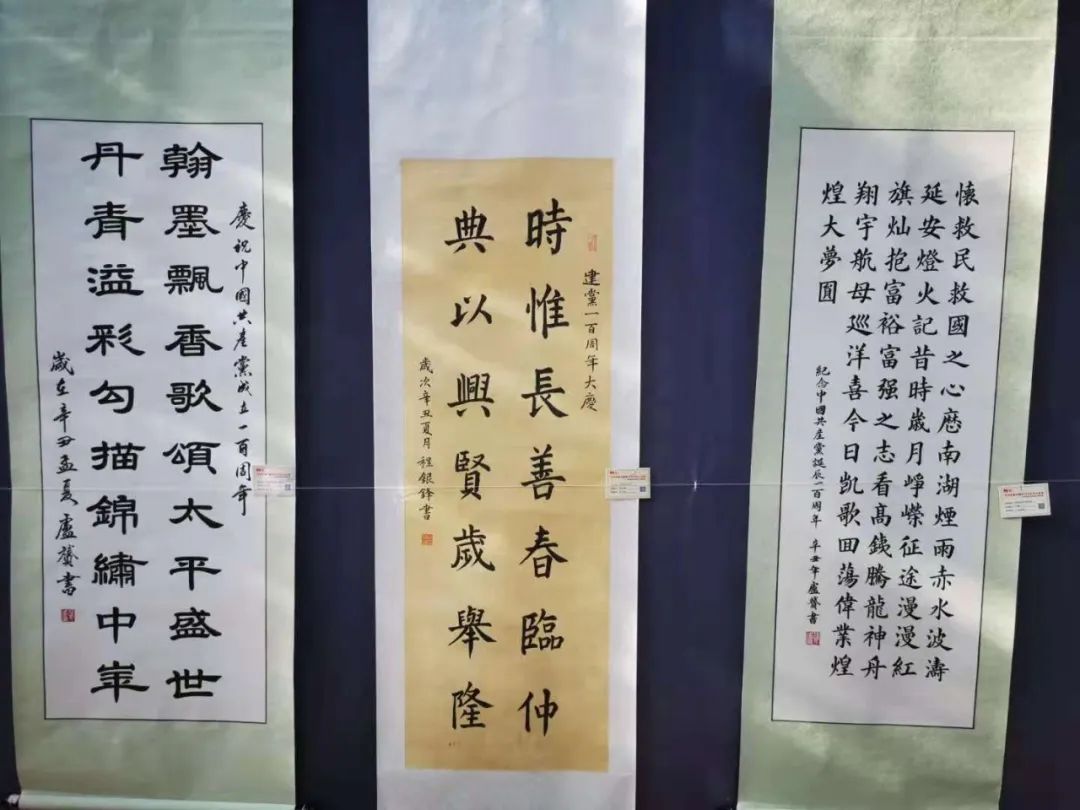 慶祝中國共産黨成立一百周年
翰墨飄香歌頌太平盛世
丹青溢彩勾描錦繡中華
歲在辛丑孟夏盧贇書
建黨一百周年大慶
時惟長善春臨仲
典以興賢歲舉隆
歲次辛丑夏月程銀鋒書
懷救民救國之心曆南湖煙雨赤水波濤
延安燈火記昔時歲月崢嶸征途漫漫紅
旗灿抱富裕富强之志看高銕騰龍神舟
翔宇航母巡洋喜今日凯歌回蕩偉業煌
煌大夢圓
紀念中國共産黨誕辰一百周年 辛丑年盧贇書